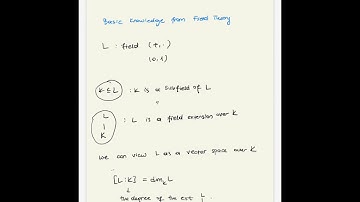 Basic Knowledge from Field Theory
L : field (+, ·)
(0, 1)
K ⊆ L : K is a subfield of L
L
|
K
: L is a field extension over K
We can view L as a vector space over K
[L:K] = dim_K L
↓
the degree of the ext L